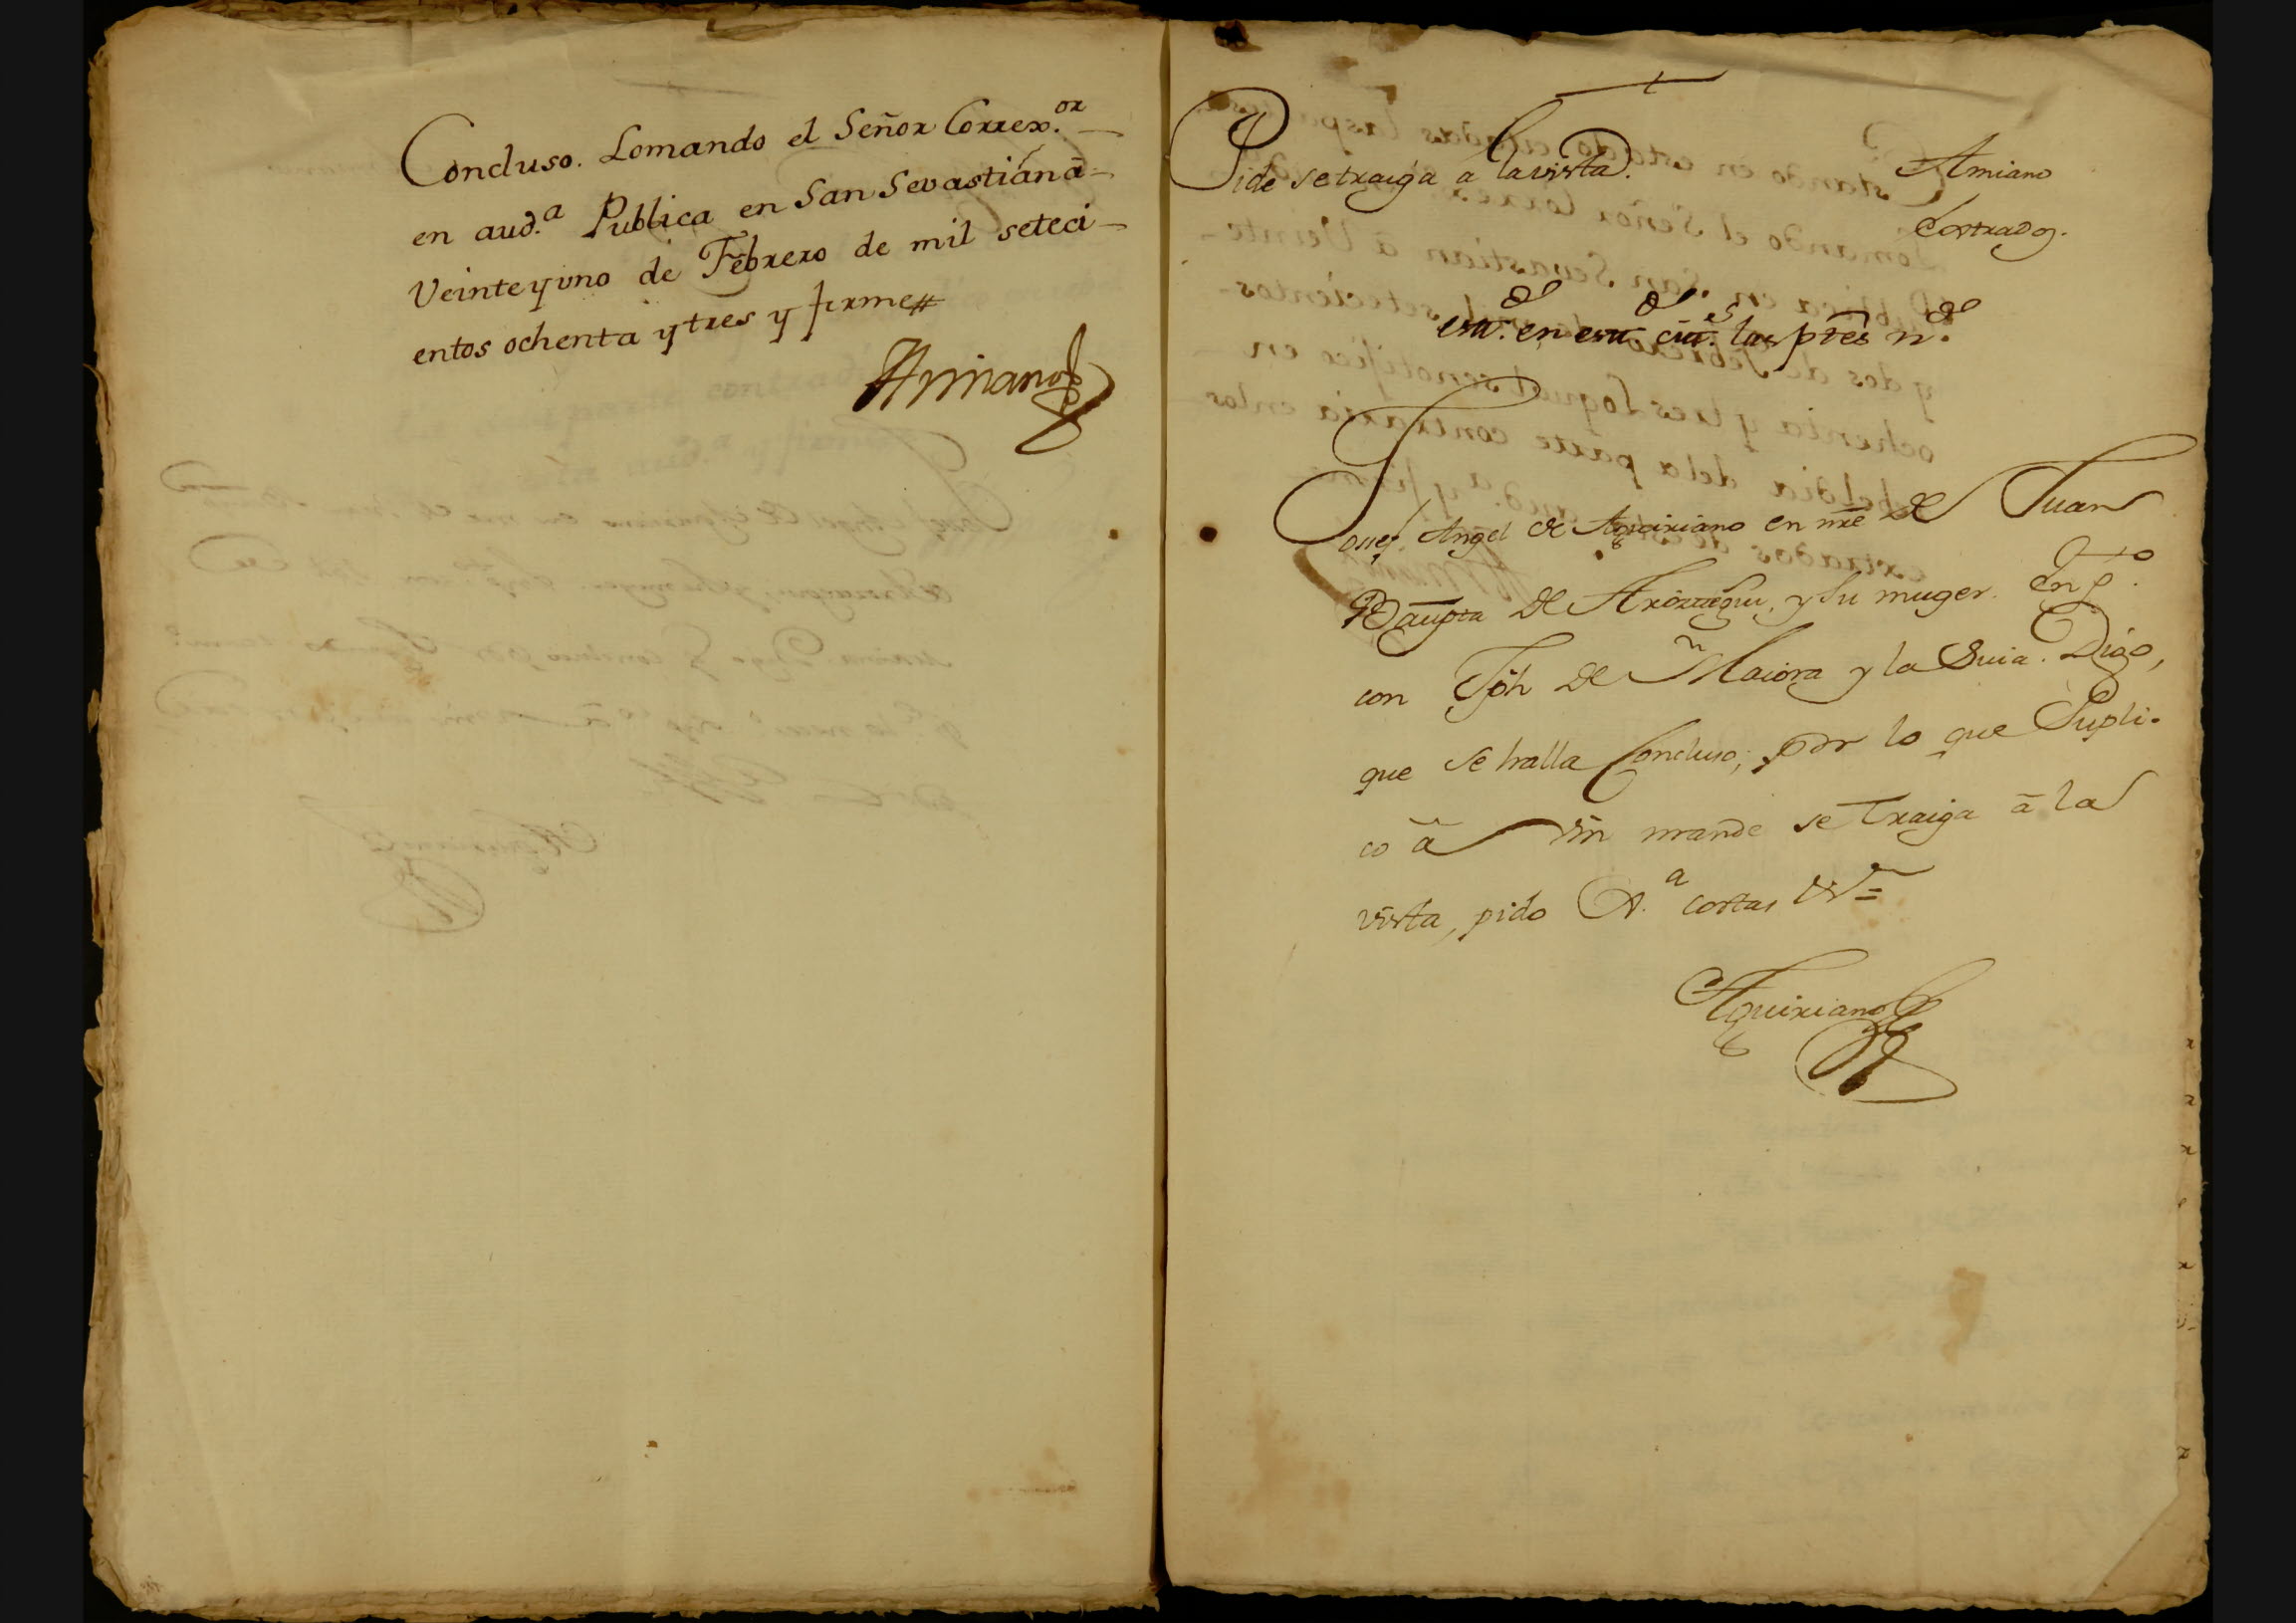 Concluso. Lomando el Señor Correx.or
en aud.a Publica en San Sevastián ā
Veinte y uno de Febrero de mil seteci-
entos ochenta y tres y firme
Amiano
Pide se traiga a la vista.
Amiano
Estrados.
en las ptes n.
Josef Angel de Aguiriano en nre de Juan
Baupta de Aroztegui, y su muger. En p.to
con Jph de Maiora y la Suia. Digo,
que se halla Concluso, por lo que Supli-
co â Vm mande se traiga â la
vista, pido costas
Aguiriano